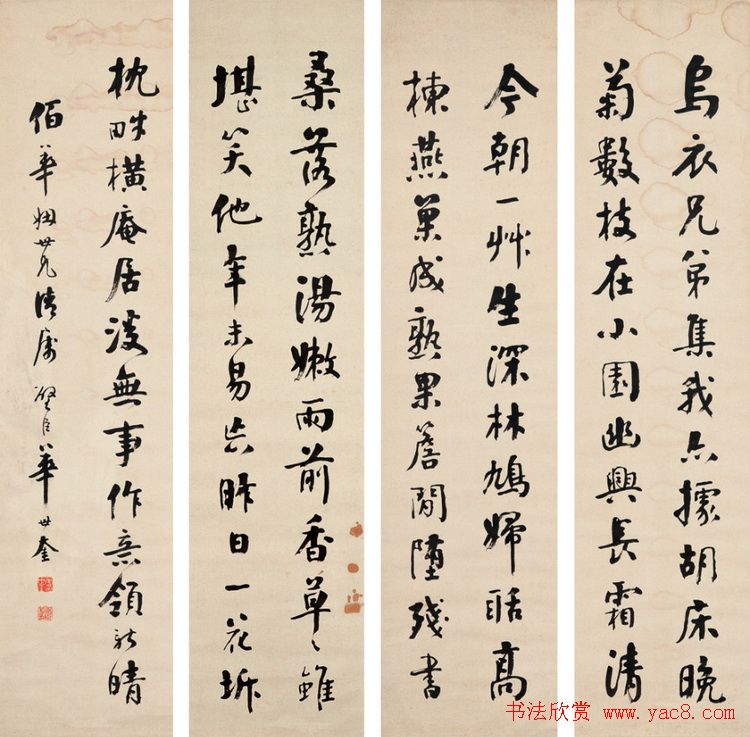 烏衣兄弟集我亦據胡床晚
菊數枝在小園幽興長霜清
今朝一艸生深林鳩婦聒高
棟燕巢成熟果簷間墮殘書
桑落熟湯嫩雨前香草〻雖
堪笑他年未易忘昨日一花坼
枕畔橫庵居無事作意領新晴
佰華姻世兄清屬 璧臣華世奎
书法欣赏 www.yac8.com